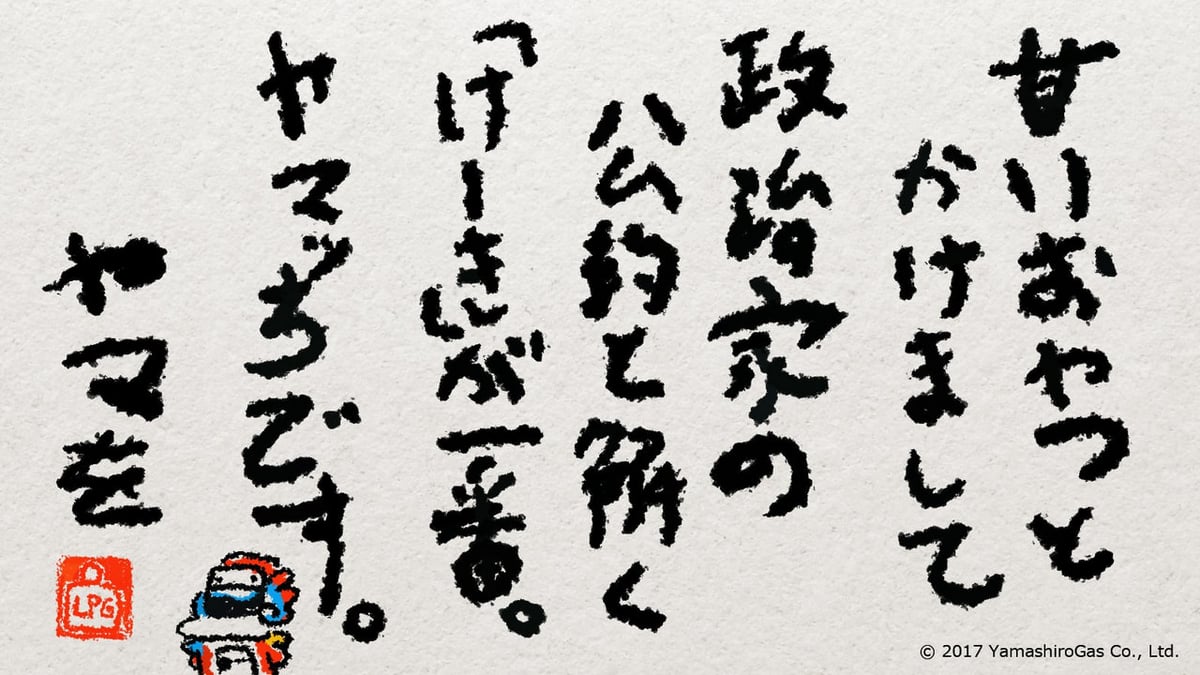 甘いおやつと
かけまして
政治家の
公約と解く
「けーき」が一番。
ヤマッちです。
やマを
LPG
© 2017 YamashiroGas Co., Ltd.